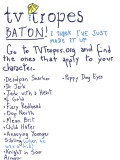 tv tropes
BATON! I THINK I'VE JUST
MADE IT UP
Go to TVTropes.org and find
the ones that apply to your
character.
- Deadpan Snarker
- Dr Jerk
- Jerk with a Heart
of Gold
- Fiery Redhead
- Dep Health
- Mean Brit
- Child Hater
- Annoying Younger
Sibling
- Knight in Sour
Armour
- Puppy Dog Eyes